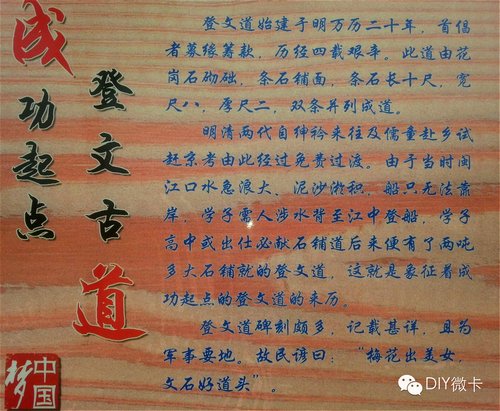 成功起点
登文古道
登文道始建于明万历二十年，首倡
者募缘筹款，历经四载艰辛。此道由花
岗石砌础，条石铺面，条石长十尺，宽
尺八，厚尺二，双条并列成道。
明清两代自绅衿来往及儒童赴乡试
赶京考由此经过免费过渡。由于当时闽
江口水急浪大、泥沙淤积，船只无法靠
岸，学子需人涉水背至江中登船，学子
高中或出仕必献石铺道后来便有了两吨
多大石铺就的登文道，这就是象征着成
功起点的登文道的来历。
登文道碑刻颇多，记载甚详，且为
军事要地。故民谚曰：“梅花出美女，
文石好道头”。
中国梦
DIY微卡